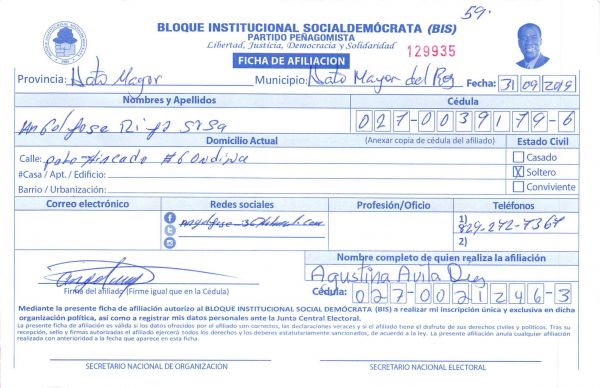 59.
BLOQUE INSTITUCIONAL SOCIALDEMÓCRATA (BIS)
PARTIDO PEÑAGOMISTA
Libertad, Justicia, Democracia y Solidaridad
129935
FICHA DE AFILIACION
Provincia: Hato Mayor Municipio: Hato Mayor del Rey Fecha: 31 09 2019
Nombres y Apellidos Cédula
Angel Jose Rijo Sosa 027-0039179-6
Domicilio Actual (Anexar copia de cédula del afiliado) Estado Civil
Calle: palo Hincado #6 Ondina Casado
#Casa / Apt. / Edificio: X Soltero
Barrio / Urbanización: Conviviente
Correo electrónico Redes sociales Profesión/Oficio Teléfonos
1) 829-272-7367
2)
Nombre completo de quien realiza la afiliación
Agustina Avila
Firma del afiliado (Firme igual que en la Cédula) Cédula: 027-0021246-3
Mediante la presente ficha de afiliación autorizo al BLOQUE INSTITUCIONAL SOCIAL DEMÓCRATA (BIS) a realizar mi inscripción única y exclusiva en dicha
organización política, así como a registrar mis datos personales ante la Junta Central Electoral.
La presente ficha de afiliación es válida si los datos ofrecidos por el afiliado son correctos, las declaraciones veraces y si el afiliado tiene el disfrute de sus derechos civiles y políticos. Tras su
recepción, sello y firmas autorizadas el afiliado ejercerá todos los derechos y los deberes estatutariamente sancionados, de acuerdo a la ley. La presente afiliación anula cualquier afiliación
realizada con anterioridad a la fecha que aparece en esta ficha.
SECRETARIO NACIONAL DE ORGANIZACIÓN SECRETARIO NACIONAL ELECTORAL